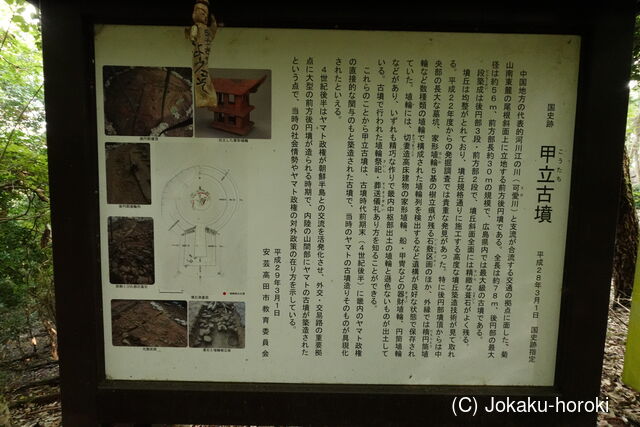 国史跡
こうたち
甲立古墳
平成28年3月1日　国史跡指定
中国地方の代表的河川江の川（可愛川）と支流が合流する交通の拠点に面した、菊
山南東麓の尾根斜面上に立地する前方後円墳である。全長は約78m、後円部の最大
径は約56m、前方部長約30mの規模で、広島県内では最大級の古墳である。
段築成は後円部3段・前方部2段で、墳丘斜面全面には精緻な葺石がよく残る。
墳丘は均整がとれており、墳丘規格通りに施工する高度な墳丘築造技術が見て取れ
る。平成22年度からの発掘調査では貴重な発見があった。特に後円部墳頂からは中
央部の長大な墓坑、家形埴輪5基の樹立痕が残る石敷区画のほか、外縁では楕円筒埴
輪など数種類の埴輪で構成された埴輪列を検出するなど遺構が良好な状態で保存され
ていた。埴輪には、切妻造高床建物の家形埴輪、船・甲冑などの器財埴輪、円筒埴輪
などがあり、いずれも精巧な作りで畿内中枢部出土の埴輪と遜色ないものが出土して
いる。古墳で行われた埴輪祭祀、葬送儀礼あり方を知ることができる。
これらのことから甲立古墳は、古墳時代前期末（4世紀後半）に畿内のヤマト政権
の直接的な関与のもと築造された古墳で、当時のヤマトの古墳造りそのものが具現化
されたといえる。
4世紀後半はヤマト政権が朝鮮半島との交流を活発化させ、外交・交易路の重要拠
点に大型の前方後円墳が造られる時期で、内陸の山間部にヤマトの古墳が築造された
という点で、当時の社会情勢やヤマト政権の対外政策の在り方を示している。
平成29年3月1日
安芸高田市教育委員会
(C) Jokaku-horoki